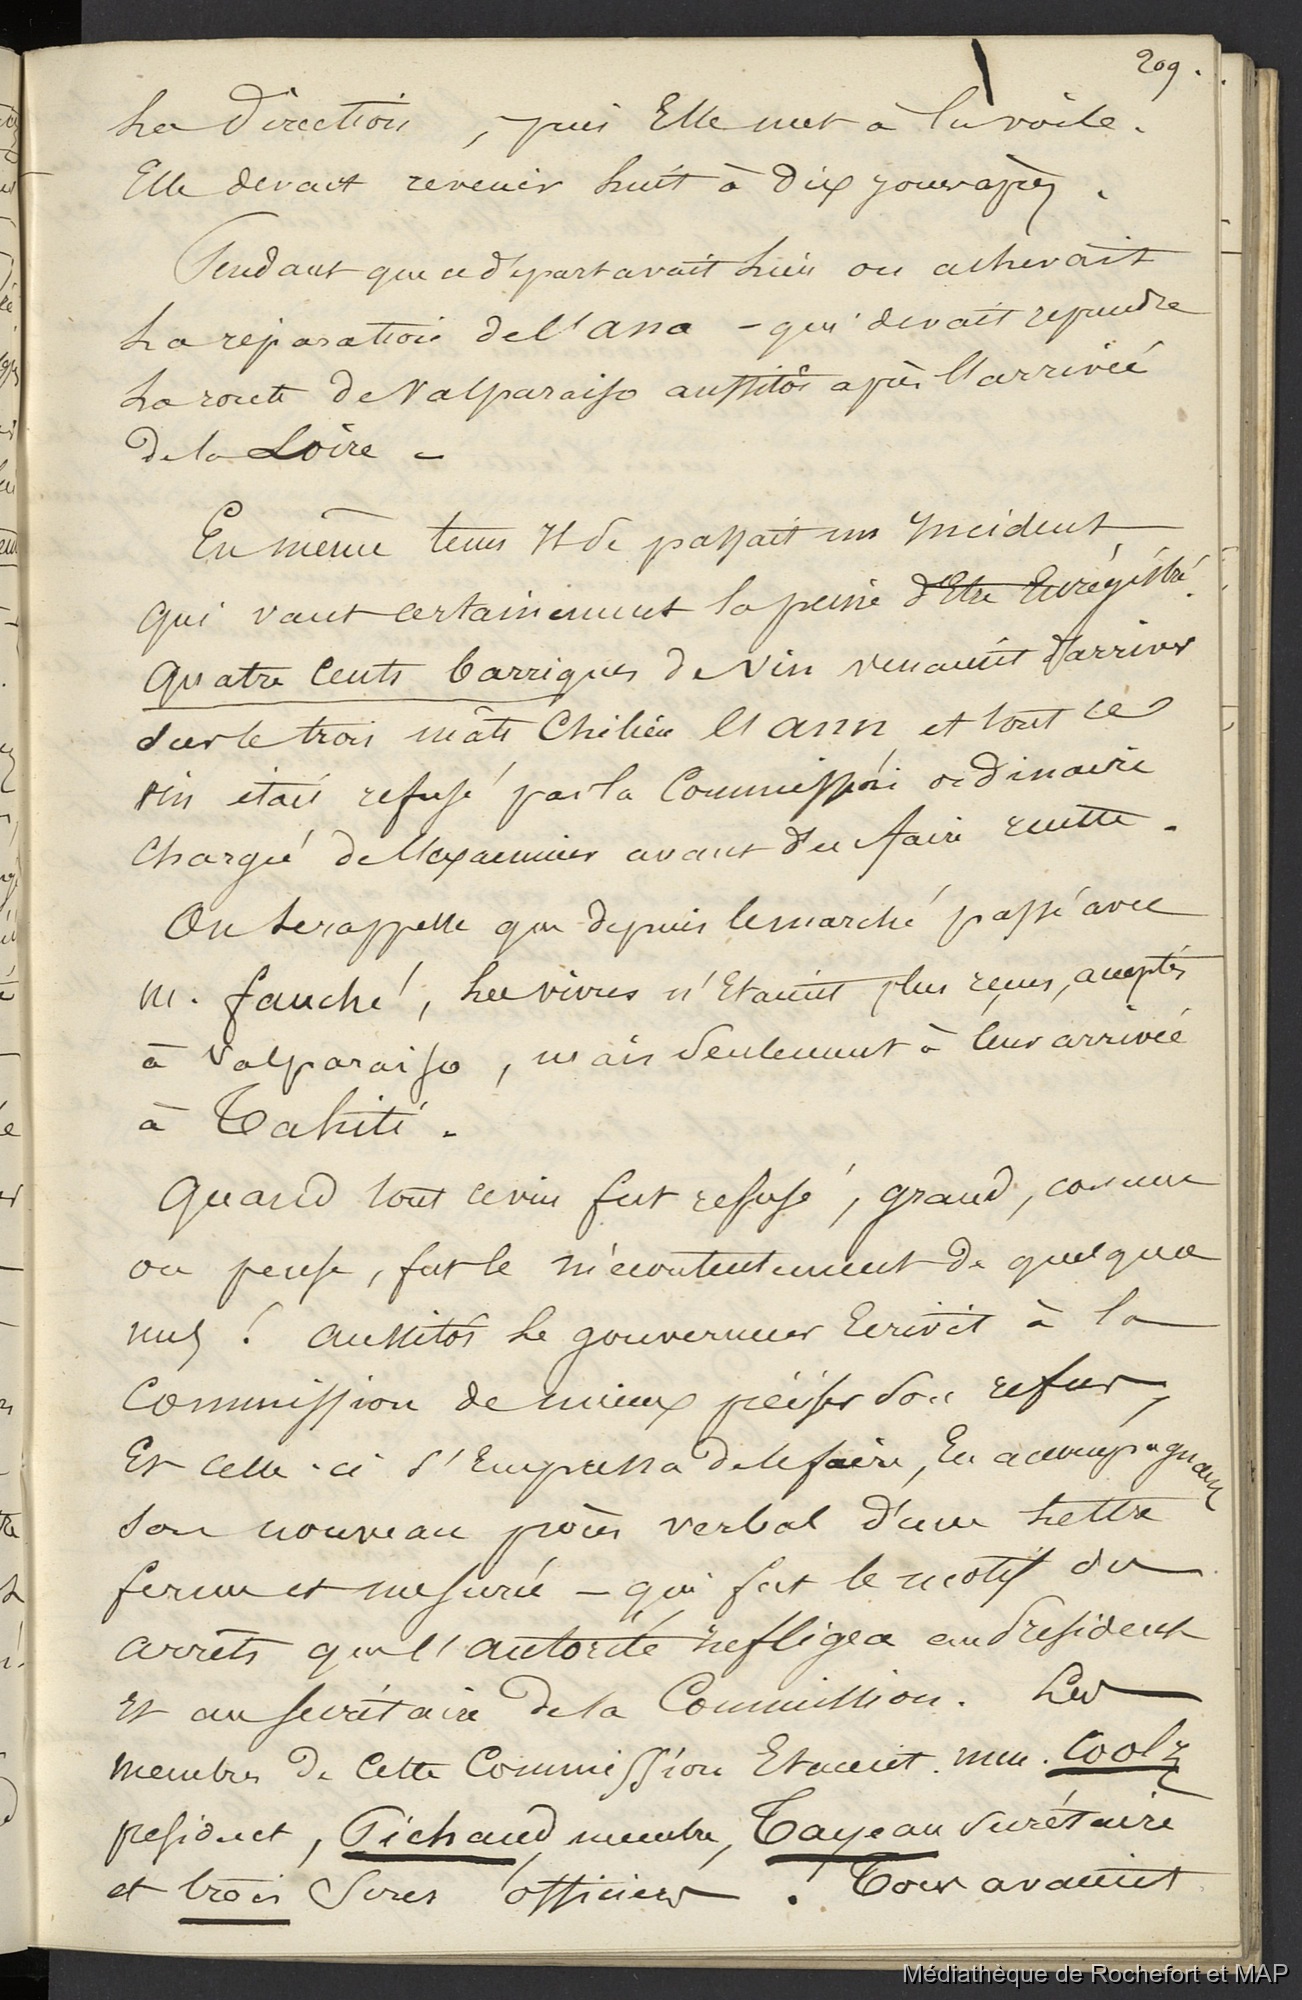 209.
La Direction, puis Elle mit à la voile.
Elle devait revenir huit à dix jours après.
Pendant que ce départ avait lieu on achevait
La réparation de l'ana - qui devait reprendre
La route de Valparaiso aussitôt après l'arrivée
de la Loire -
En même tems Il Se passait un Incident
qui vaut certainement la peine d'Etre Enrégistré.
Quatre Cents barriques de Vin venaient d'arriver
Sur le trois mâts Chilien l'ann et tout ce
vin était refusé par la Commission ordinaire
Chargée de l'examiner avant d'en faire recette.
On Se rappelle que depuis le marché passé avec
M. fauché, Les vivres n'Etaient plus reçus, acceptés
à Valparaiso, mais Seulement à leur arrivée
à Tahiti.
Quand tout ce vin fut refusé, grand, comme
on pense, fut le mécontentement de quelques
uns! aussitôt Le gouverneur Ecrivit à la
Commission de mieux préciser Son refus,
Et celle-ci s'Empressa de le faire, En accompagnant
Son nouveau procès verbal d'une Lettre
ferme et mesurée - qui fut le motif des
arrêts que l'autorité infligea au President
Et au Secrétaire de la Commission. Les
membres de Cette Commission Etaient. mm. Coolz
president, Pichaud, membre, Tayeau Secrétaire
et trois officiers. Tous avaient